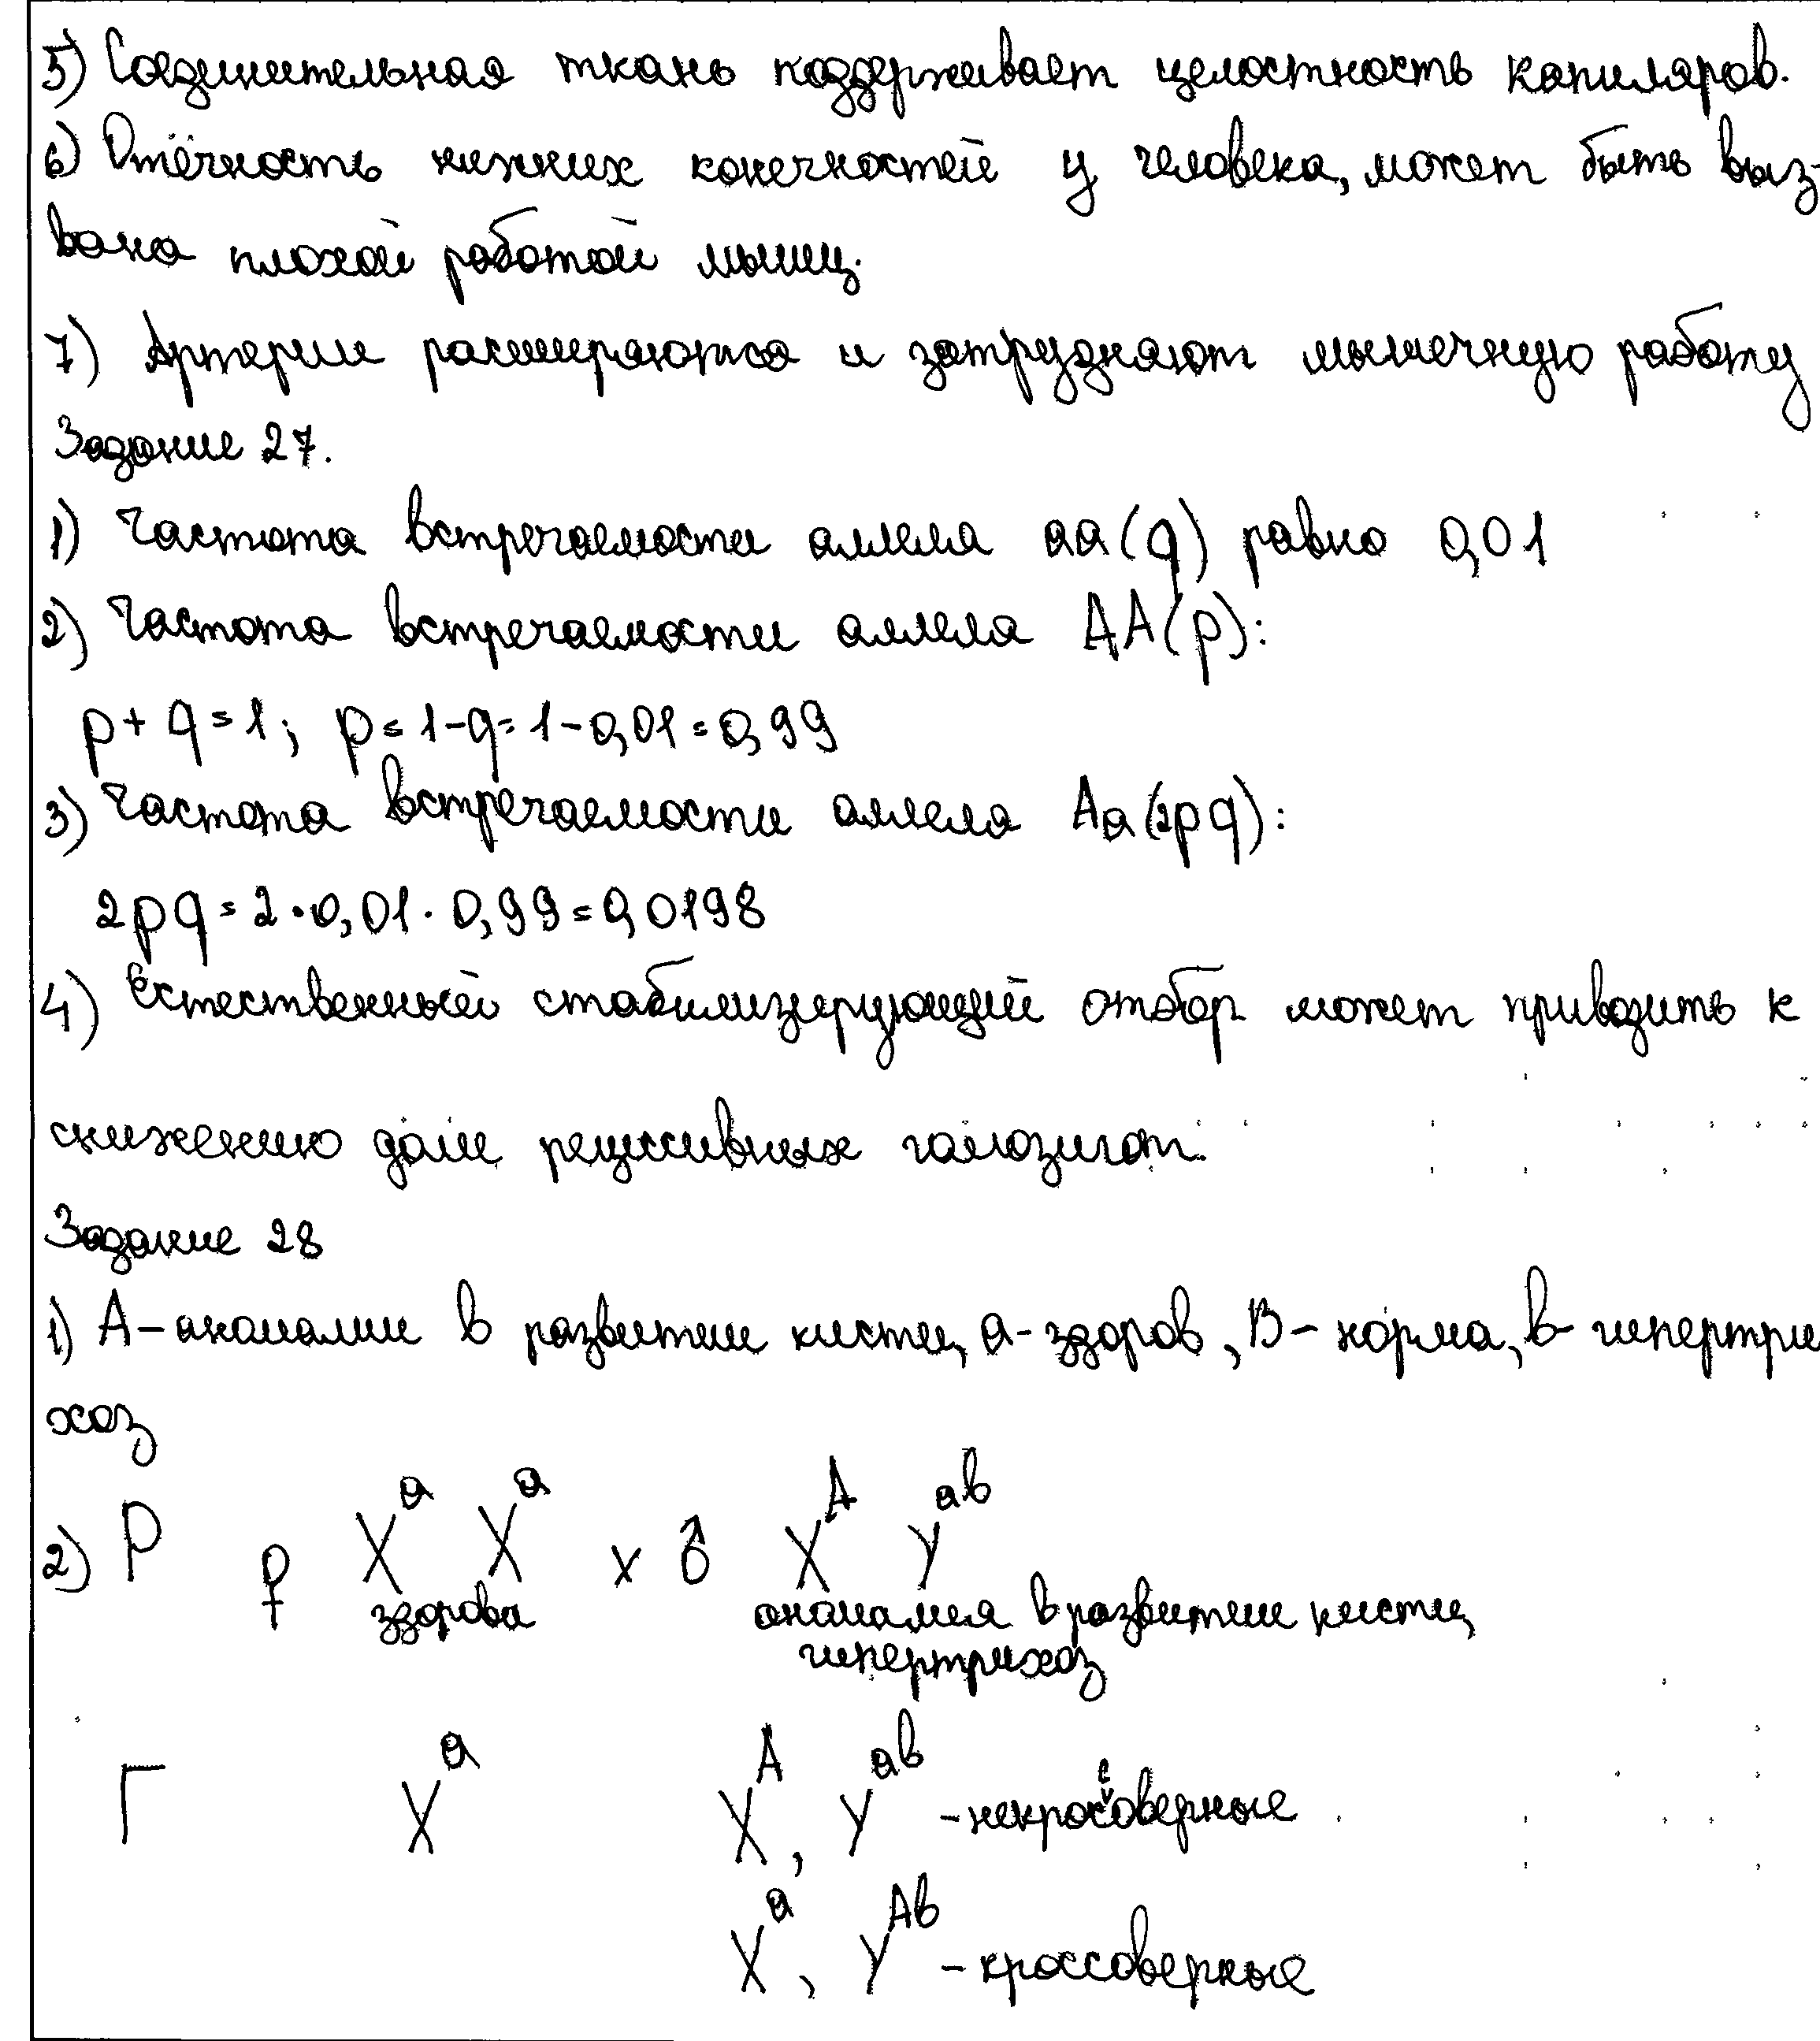 5) Соединительная ткань поддерживает целостность капиляров.
6) Отёчность нижних конечностей у человека, может быть выз-
вана плохой работой мышц.
7) Артерии расширяются и затрудняют мышечную работу
Задание 27.
1) Частота встречаемости аллеля aa(q) равно 0,01
2) Частота встречаемости аллеля AA(p):
p + q = 1; p = 1 - q = 1 - 0,01 = 0,99
3) Частота встречаемости аллеля Aa(2pq):
2pq = 2 · 0,01 · 0,99 = 0,0198
4) Естественный стабилизирующий отбор может приводить к
снижению доли рецессивных гомозигот.
Задание 28
1) А - аномалии в развитии кисти, а - здоров, В - норма, в - гипертри
хоз
2) P ♀ X^a X^a x ♂ X^A Y^ав
здорова аномалия в развитии кисти,
гипертрихоз
Г X^a X^A, Y^ав - некроссоверные
X^a, Y^Ав - кроссоверные